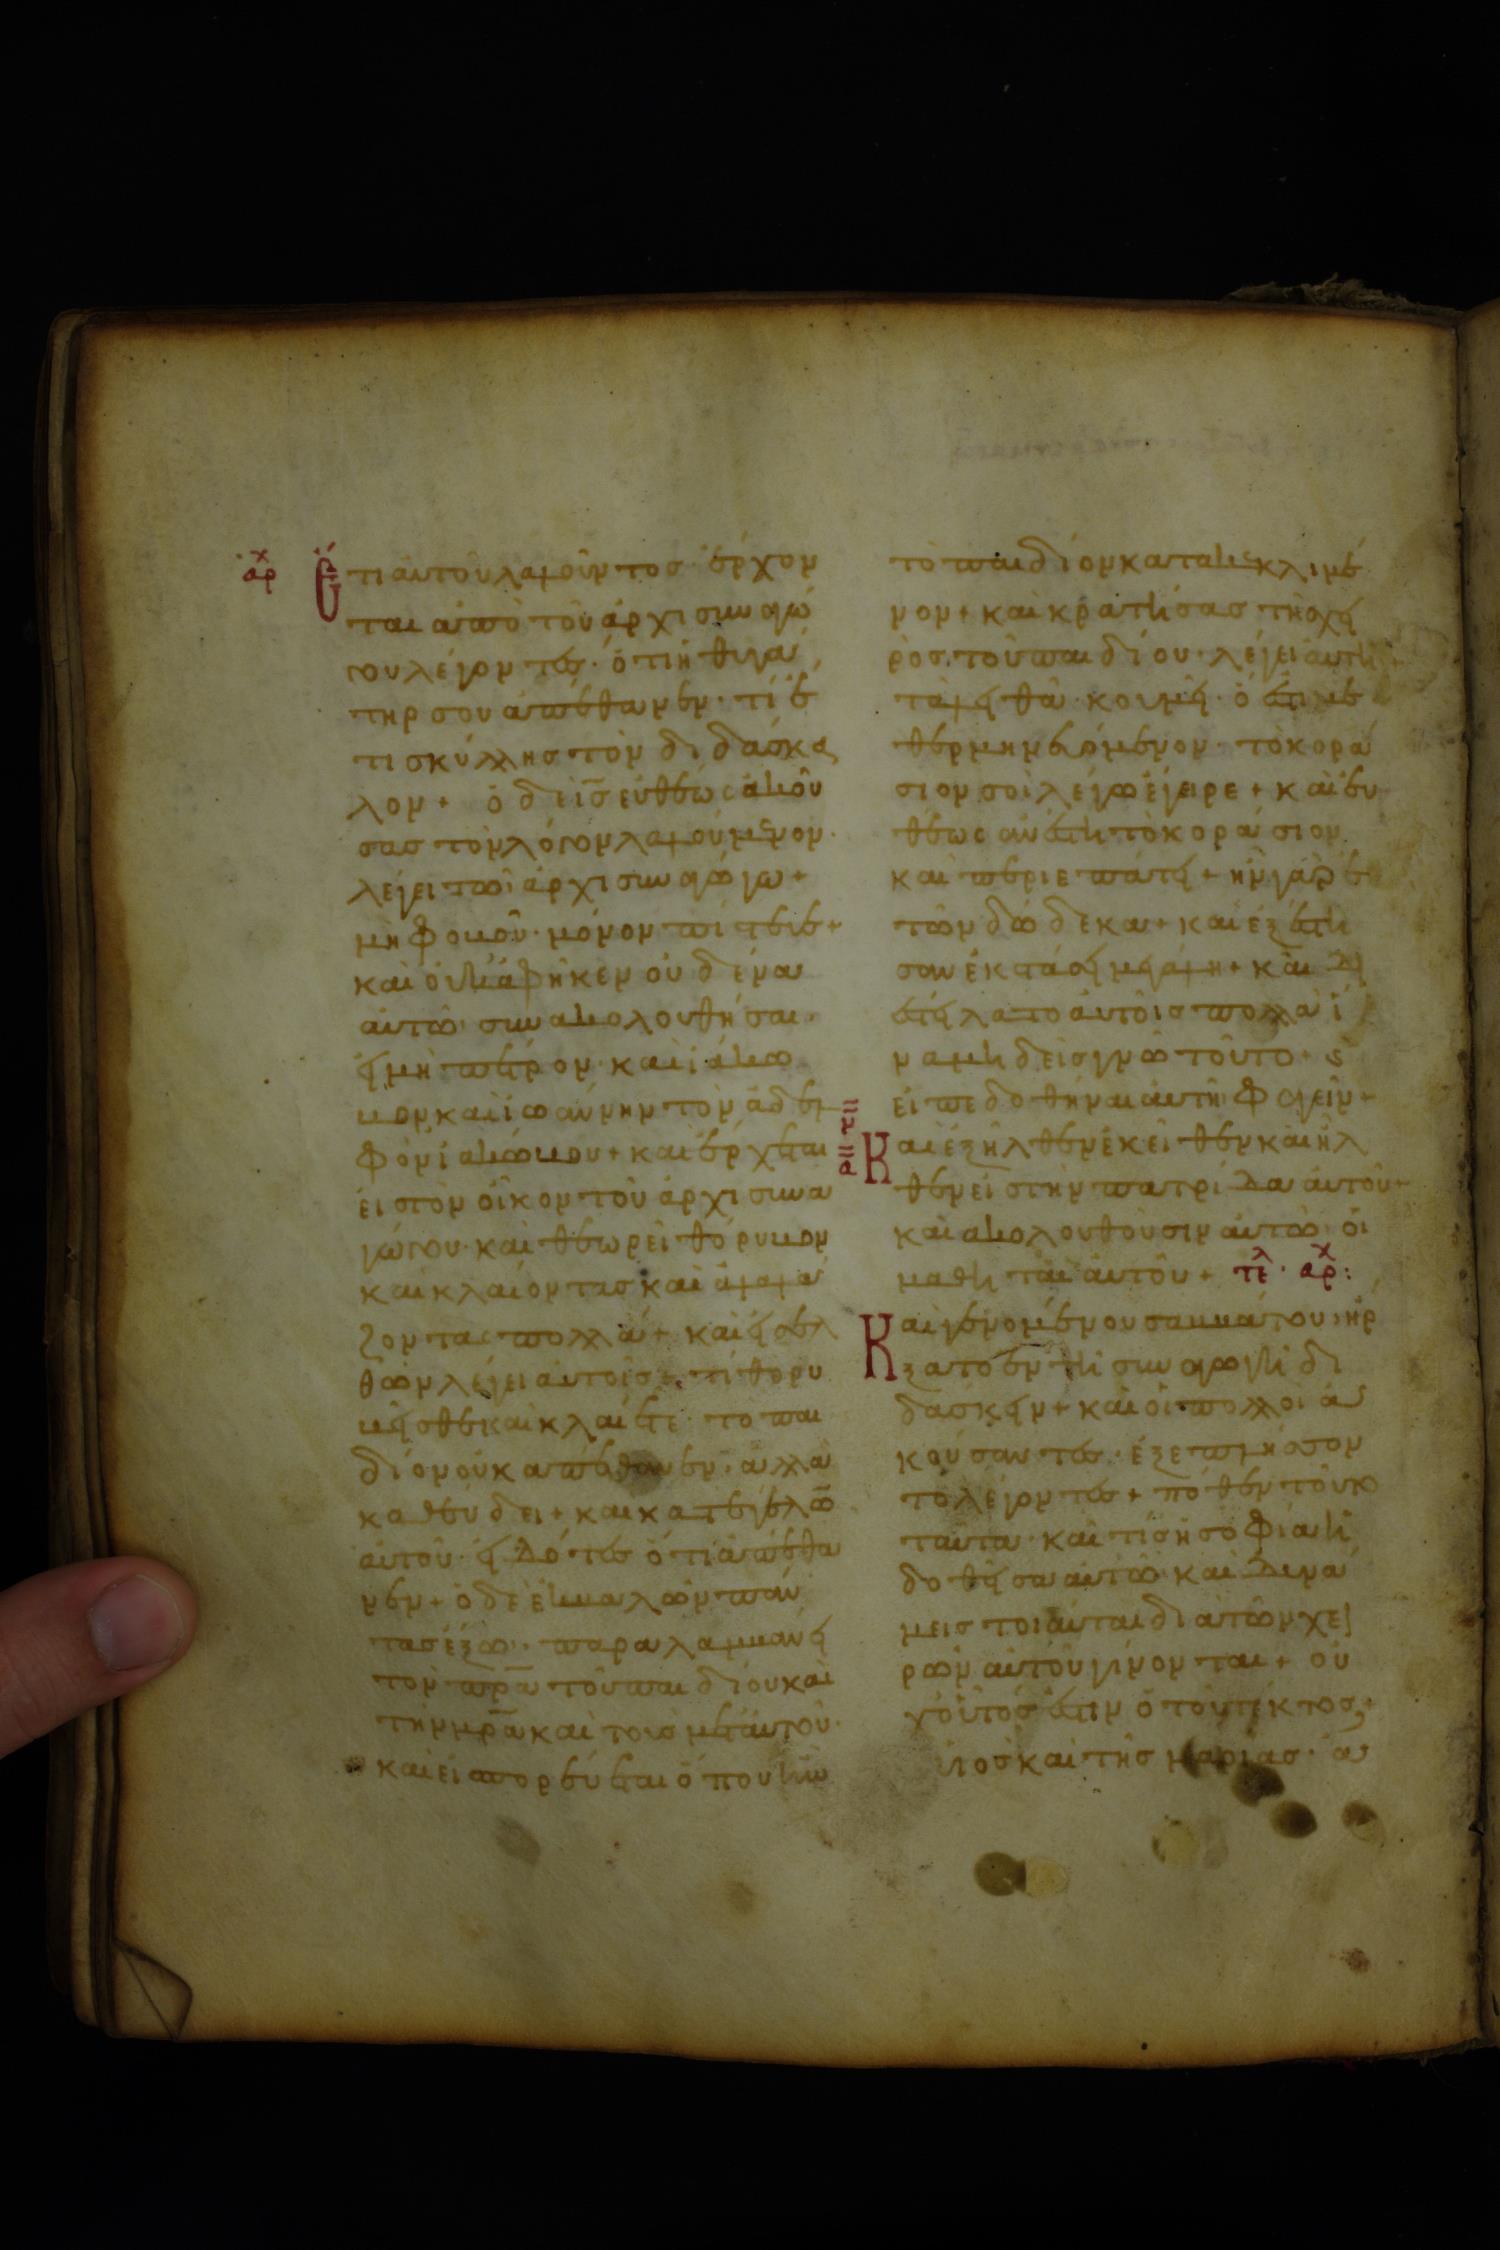 αρχ Ἔτι αὐτοῦ λαλοῦντος· ἔρχον
ται ἀπὸ τοῦ ἀρχισυναγώ
γου λέγοντες· ὅτι ἡ θυγά
τηρ σου ἀπέθανεν· τί ἔ
τι σκύλλης τὸν διδάσκα
λον + ὁ δὲ ις εὐθέως ἀκού
σας τὸν λόγον λαλούμενον·
λέγει τῶ ἀρχισυναγώγω +
μὴ φοβοῦ· μόνον πίστευε +
καὶ οὐκ ἀφῆκεν οὐδένα
αὐτῶ συνακολουθῆσαι·
εἰ μὴ πέτρον· καὶ ἰάκω
βον καὶ ἰωάννην τὸν ἀδελ
φὸν ἰακώβου + καὶ ἔρχεται
εἰς τὸν οἶκον τοῦ ἀρχισυνα
γώγου· καὶ θεωρεῖ θόρυβον
καὶ κλαίοντας καὶ ἀλαλά
ζοντας πολλά + καὶ εἰσελ
θὼν λέγει αὐτοῖς + τί θορυ
βεῖσθε καὶ κλαίετε· το παι
δίον οὐκ ἀπέθανεν· ἀλλὰ
καθεύδει + καὶ κατεγέλων
αὐτοῦ· εἰδότες ὅτι ἀπέθα
νεν + ὁ δὲ ἐκβαλὼν πάν
τας ἔξω· παραλαμβάνει
τὸν πρα τοῦ παιδίου καὶ
τὴν μρα καὶ τοὺς μετ αὐτοῦ·
καὶ εἰσπορεύεται ὅπου ἦν
τὸ παιδίον κατακεκλιμέ
νον + καὶ κρατήσας τῆς χει
ρὸς τοῦ παιδίου· λέγει αὐτῆ +
ταλιθὰ· κοῦμι· ὅ ἐστι με
θερμηνευόμενον· τὸ κορά
σιον σοὶ λέγω ἔγειρε + καὶ εὐ
θέως ἀνέστη τὸ κοράσιον
καὶ περιεπάτει + ἦν γὰρ ἐ
τῶν δώδεκα + καὶ ἐξέστη
σαν ἐκστάσει μεγάλη + καὶ δι
εστείλατο αὐτοῖς πολλὰ ἵ
να μηδεὶς γνῶ τοῦτο + καὶ
εἶπε δοθῆναι αὐτῆ φαγεῖν +
Καὶ ἐξῆλθεν ἐκεῖθεν καὶ ἦλ
θεν εἰς τὴν πατρίδα αὐτοῦ +
καὶ ἀκολουθοῦσιν αὐτῶ οἱ
μαθηταὶ αὐτοῦ + τελ· αρχ:
Καὶ γενομένου σαββάτου ἤρ
ξατο ἐν τῆ συναγωγῆ δι
δάσκειν + καὶ οἱ πολλοὶ ἀ
κούσαντες· ἐξεπλήσσον
το λέγοντες + πόθεν τούτω
ταῦτα· καὶ τίς ἡ σοφία ἡ
δοθεῖσα αὐτῶ· καὶ δυνά
μεις τοιαῦται διὰ τῶν χει
ρῶν αὐτοῦ γίνονται + οὐ
χ οὗτός ἐστιν ὁ τοῦ τέκτονος
υἱὸς καὶ τῆς μαρίας· ἀ